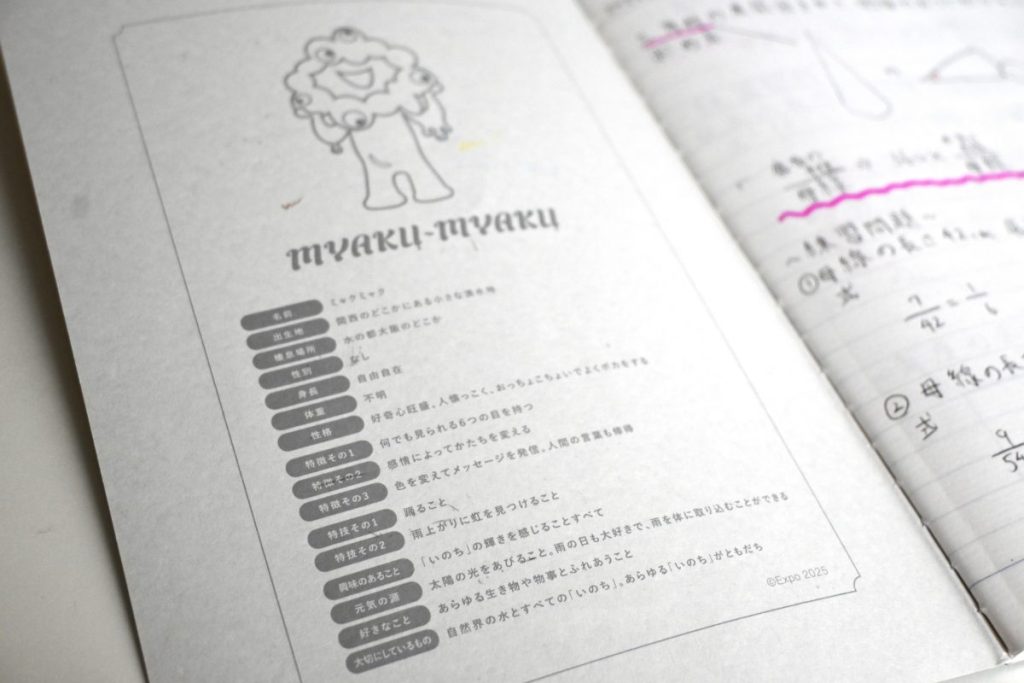 MYAKU-MYAKU
名前 ミャクミャク
出生地 関西のどこかにある小さな湧水地
棲息場所 水の都大阪のどこか
性別 なし
身長 自由自在
体重 不明
性格 好奇心旺盛、人懐っこく、おっちょこちょいでよくポカをする
特徴その1 何でも見られる6つの目を持つ
特徴その2 感情によってかたちを変える
特徴その3 色を変えてメッセージを発信。人間の言葉も修得
特技その1 踊ること
特技その2 雨上がりに虹を見つけること
興味のあること 「いのち」の輝きを感じることすべて
元気の源 太陽の光をあびること。雨の日も大好きで、雨を体に取り込むことができる
好きなこと あらゆる生き物や物事とふれあうこと
大切にしているもの 自然界の水とすべての「いのち」。あらゆる「いのち」がともだち
©Expo 2025
~練習問題~
①母線の長さ42cm
式
7/42=1/6
②母線の長
式
9/54